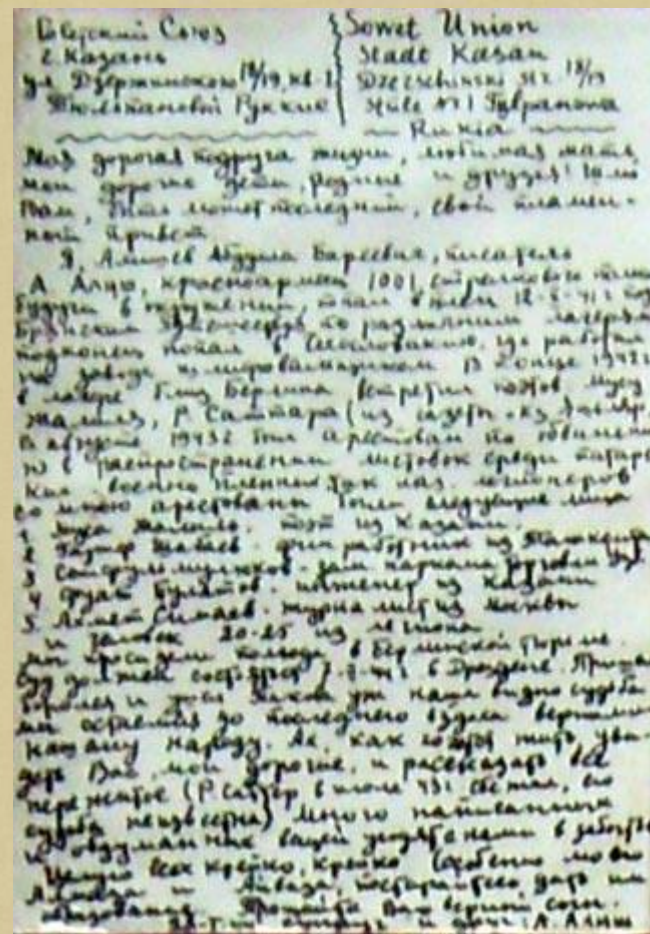 Советский Союз
г. Казань
ул. Дзержинского 18/19, кв. 1
Тюльпановой Руккие
Sowet Union
Stadt Kasan
18/19
Rukia
Моя дорогая подруга жизни, любимая мать,
мои дорогие дети, родные и друзья! Шлю
Вам, быть может последний, свой пламен-
ный привет
Я, Алишев Абдулла Бареевич, писатель
А. Алиш, красноармеец 1001 стрелкового полка
будучи в окружении, попал в плен 12-X-41 г. под
Брянском по различным лагерям
подконец попал в где работал
на заводе В конце 1942 г.
в лагере близ Берлина встретил поэтов Мусу
Жалиля, Р. Саттара (из газеты
В августе 1943 г. был арестован по обвинени
ю в распространении листовок среди татарс
ких военнопленных легионеров
со мною арестованы были следующие лица
1. Муса Жалиль. поэт из Казани.
2. работник из Ташкента
3. зам наркома торговли
4. Фуат Булатов - инженер из Казани
5. Ахмет Симаев - журналист из Москвы
и человек 20-25 из легиона
мы просидели полгода в Берлинской тюрьме.
Суд должен состояться в Дрездене.
наша видно судьба
мы остаемся до последнего вздоха верными
нашему народу. Ах, как хочется жить, уви-
деть Вас, мои дорогие, и рассказать все
пережитое (Р. Саттар в июле 43 г. сбежал, его
судьба неизвестна) много написанных
и обдуманных вещей с нами в
Целую всех крепко, крепко (особенно мою
и Айваза, постарайтесь дать им
образование. Прощайте Ваш верный сын.
супруг и отец: А. Алиш